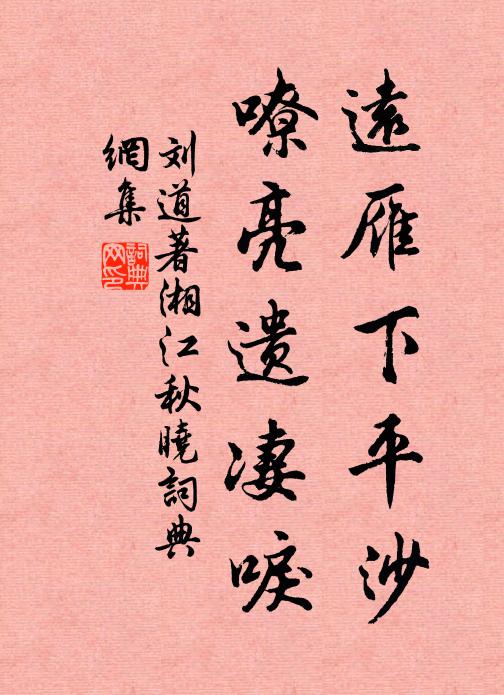 遠雁下平沙
嘹亮遗淒唳
刘道著湘江秋曉詞典
網集
詞典
网印